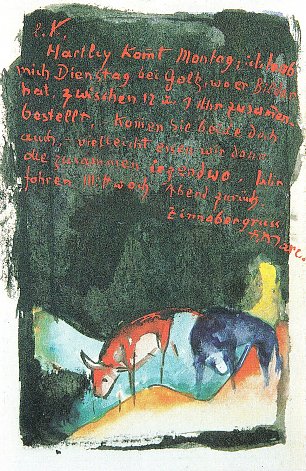 L. K.
Hartley komt Montag, ich habe
mich Dienstag bei Goltz, wo er Bilder
hat, zwischen 12 u. 1 Uhr zusammen-
bestellt. Komen Sie beide doch
auch; vielleicht essen wir dann
alle zusammen irgendwo. Wir
fahren Mittwoch Abend zurück
Zinnobergruss
F. Marc.